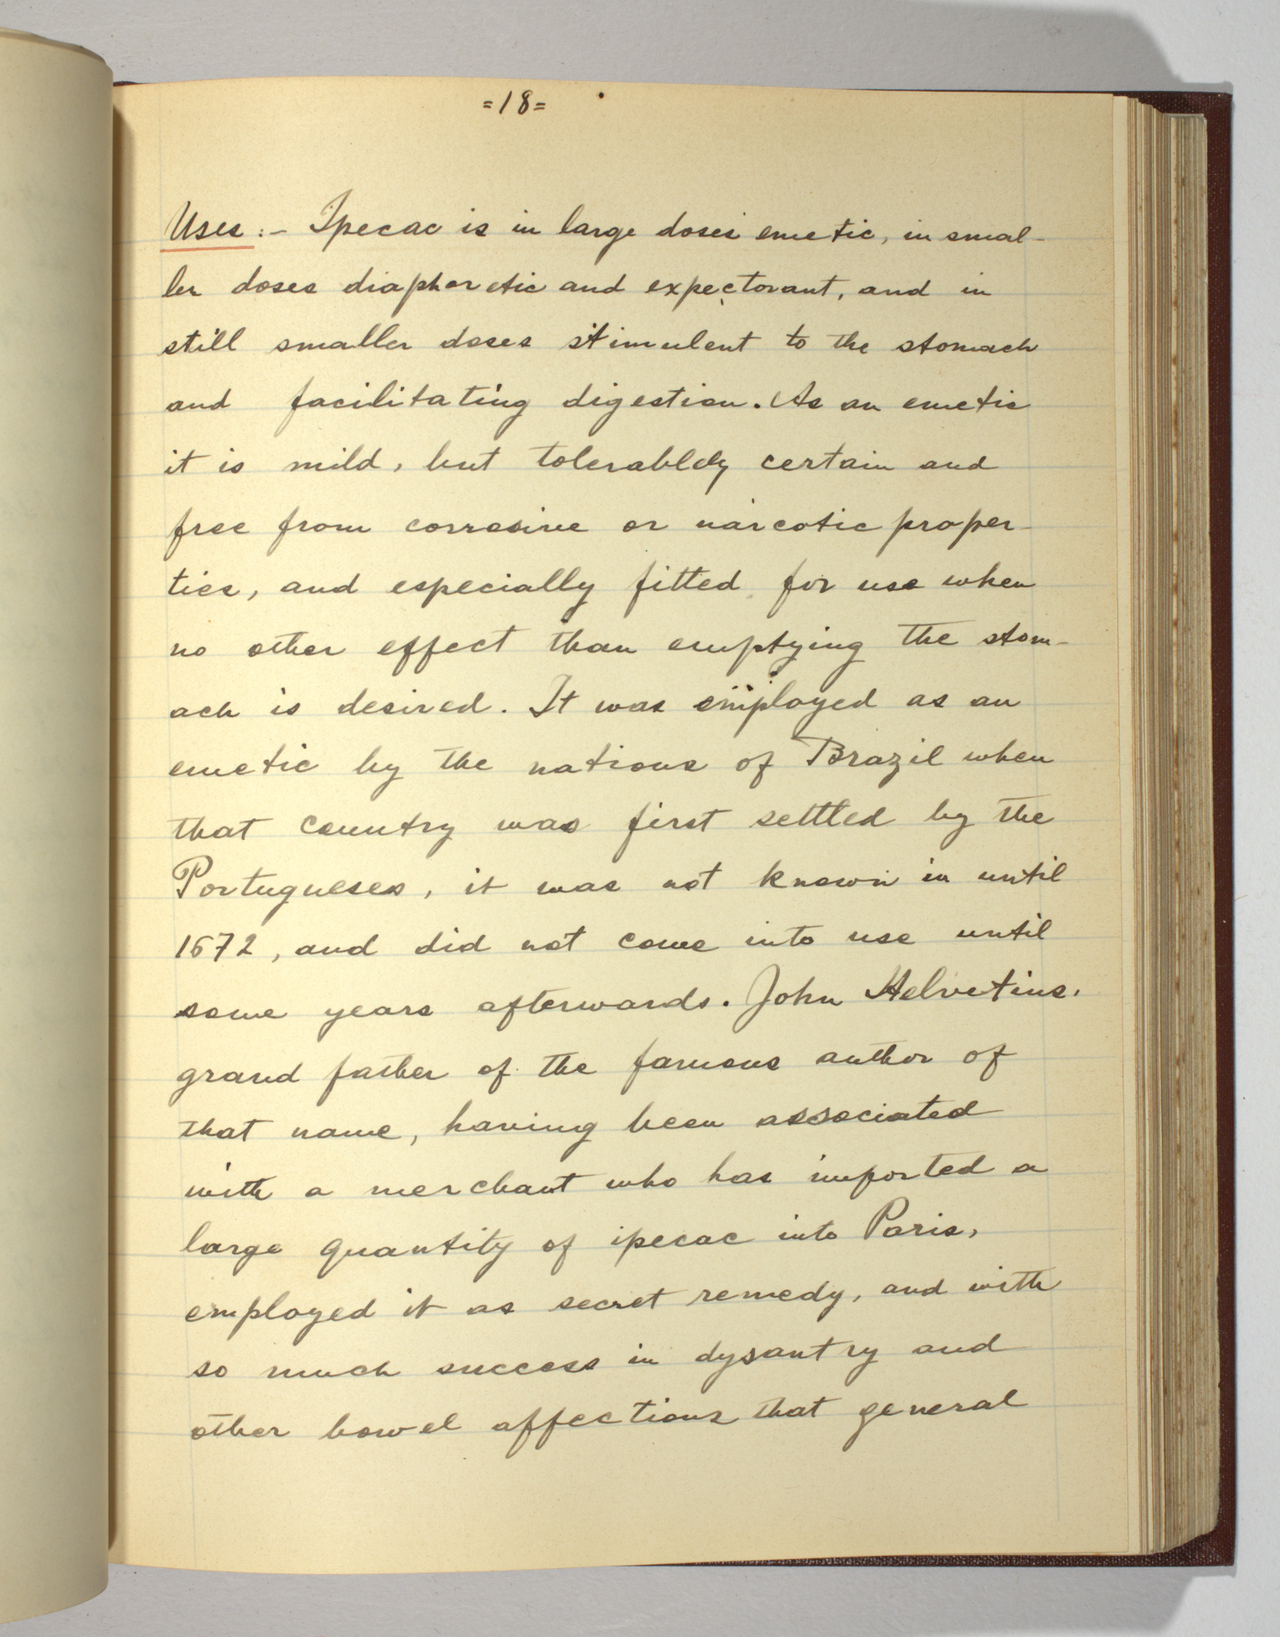 =18=
Uses:- Ipecac is in large doses emetic, in smal-
ler doses diaphoretic and expectorant, and in
still smaller doses stimulent to the stomach
and facilitating digestion. As an emetic
it is mild, but tolerabley certain and
free from corrosive or narcotic proper-
ties, and especially fitted for use when
no other effect than emptying the stom-
ach is desired. It was employed as an
emetic by the nations of Brazil when
that country was first settled by the
Portugueses, it was not known in until
1672, and did not come into use until
some years afterwards. John Helvetius,
grand father of the famous author of
that name, having been associated
with a merchant who has imported a
large quantity of ipecac into Paris,
employed it as secret remedy, and with
so much success in dysantry and
other bowel affections that general